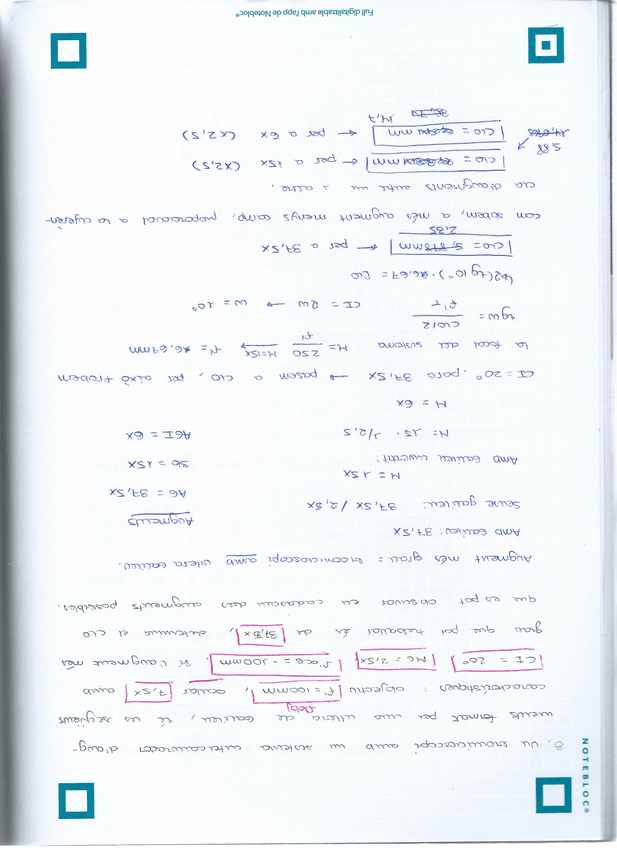 NOTEBLOC®
8. Un biomicroscopi amb un sistema intercanviador d'aug-
ments format per una ullera de Galileu, té les següents
característiques: objectiu f' = 100mm, ocular 7,5x amb
Δobj
CI = 20° MG = 2,5x f'oc G = -100mm. Si l'augment més
gran que pot treballar és de 37,5x, determina el CLO
que es pot observar en cadascun dels augments possibles.
Augment més gran = biomicroscopi amb ullera Galileu.
AMB Galileu: 37,5x
Augments
Sense Galileu: 37,5x / 2,5x
AG = 37,5x
M = 15x
Sb = 15x
AMB Galileu invertit:
M = 15 · 1/2,5
AGI = 6x
M = 6x
CI = 20° para 37,5x → passem a CLO, per això trobem
la focal del sistema M = 250/f' M=15x → f' = 16,67mm
tgω = CLO/2 / f'T CI = 2ω → ω = 10°
2(tg 10°) · 16,67 = CLO
CLO = 5,878mm ← per a 37,5x
2,35
Com sabem, a més augment menys camp, proporcional a la diferèn-
cia d'augments entre un i altre.
CLO = mm ← per a 15x (x2,5)
5,88
CLO = mm ← per a 6x (x2,5)
14,7
Full digitalitzable amb l'app de Notebloc®